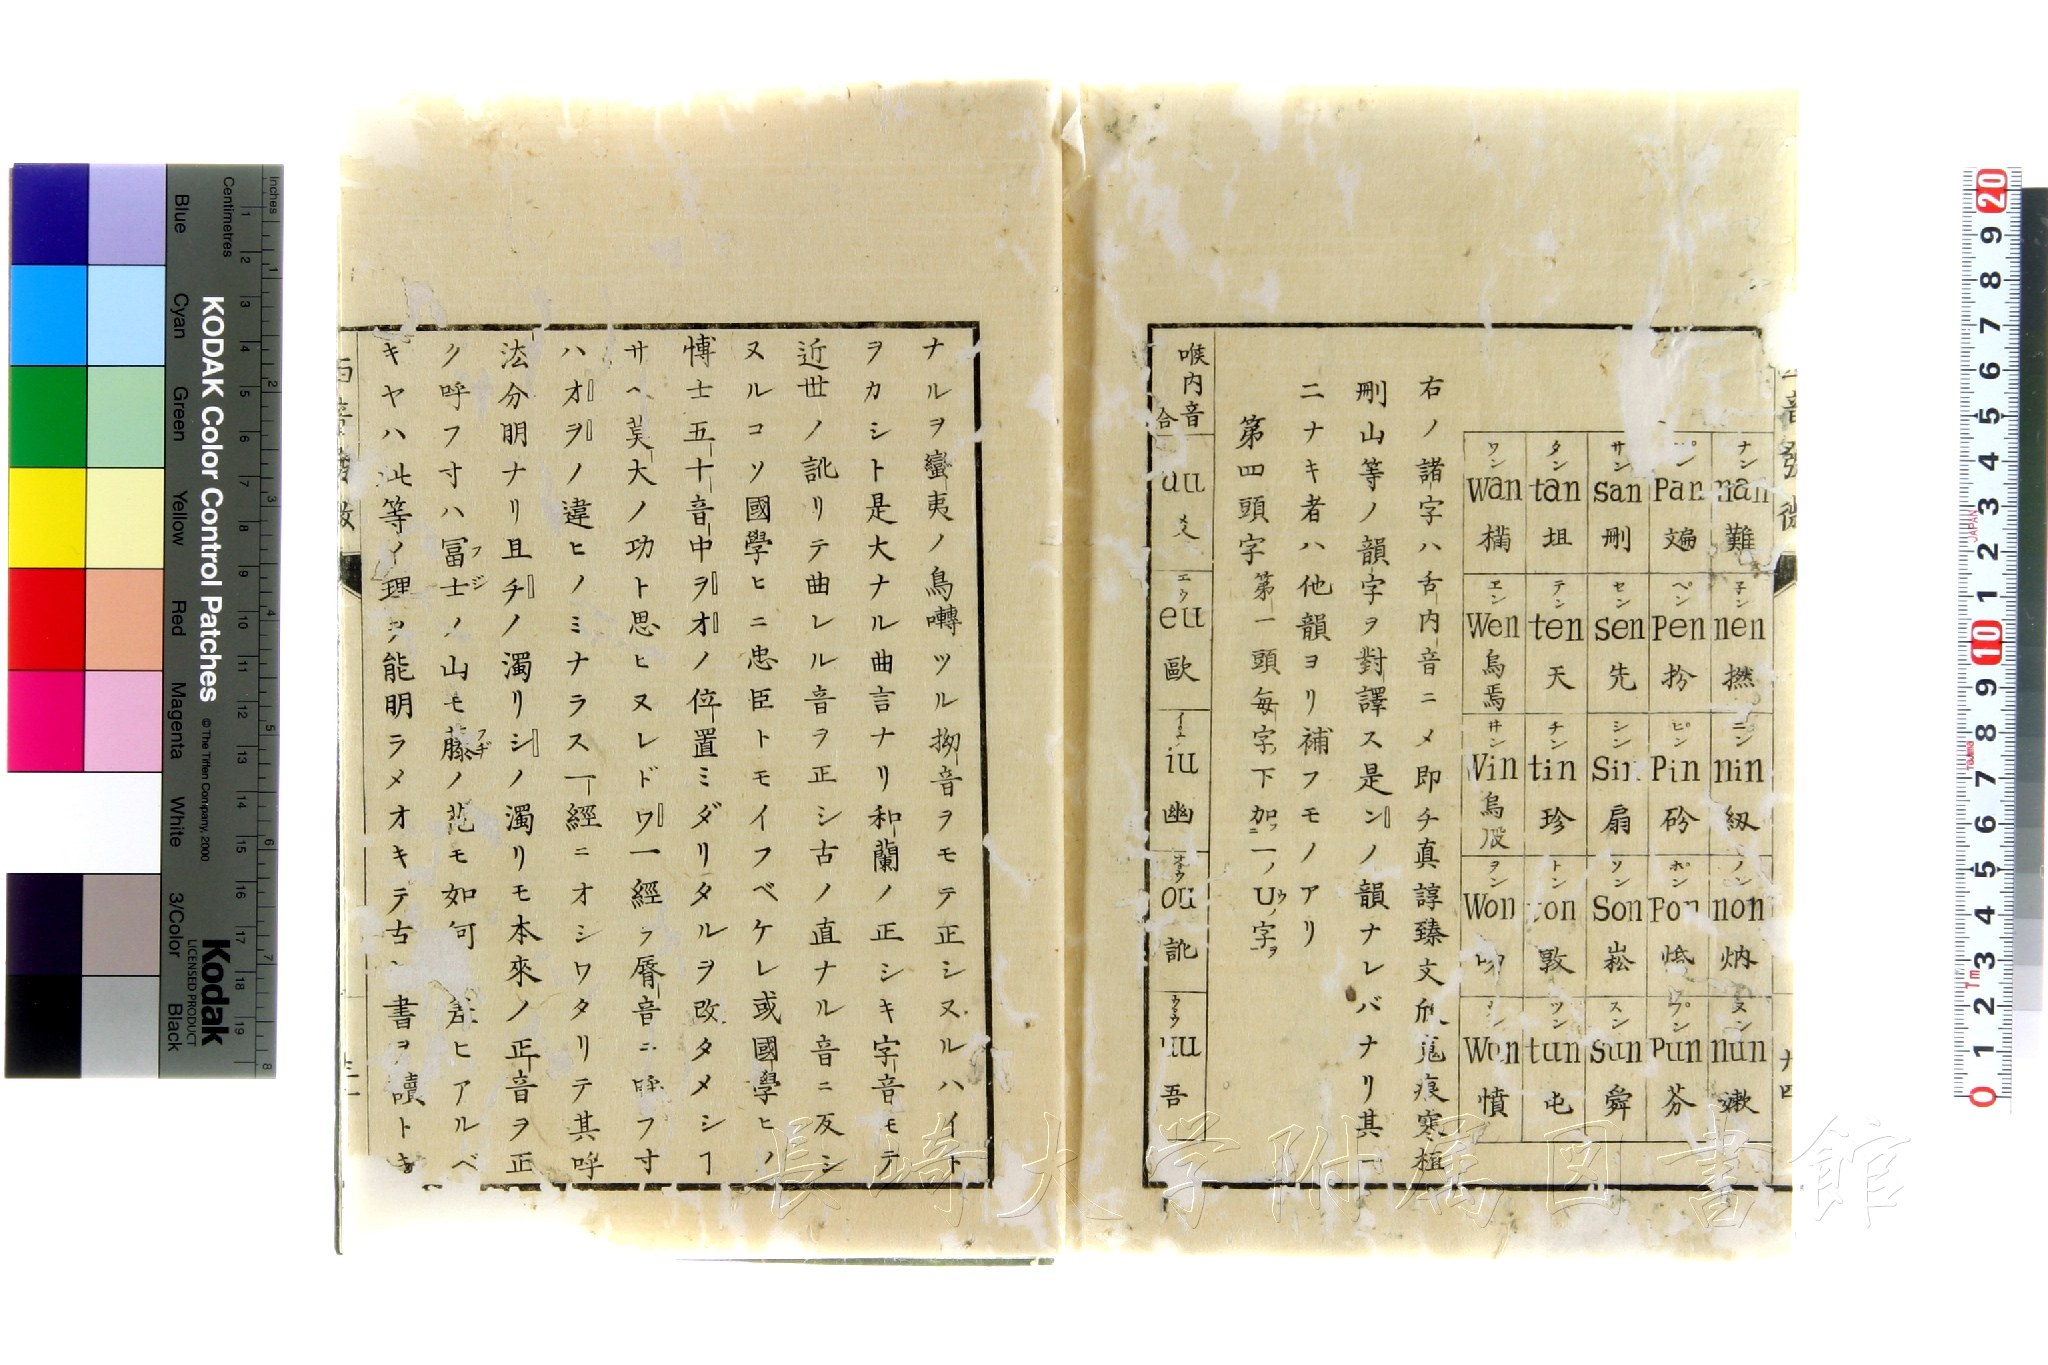 ナン パン サン タン ワン
nan Pan san tan Wan
難 刪 坦 樠
子ン ペン セン テン ヱン
nen Pen sen ten Wen
撚 扮 先 天 烏焉
ニン ピン シン チン ヰン
nin Pin Sin tin Win
紉 砏 扇 珍 烏殷
ノン ポン ソン トン ヲン
non Pon Son ton Won
炳 崧 敦
ヌン プン スン ツン
nun Pun Sun tun Wun
嫰 芬 舜 屯 憤
右ノ諸字ハ舌内音ニメ即チ真諄臻文欣魂痕寒桓
刪山等ノ韻字ヲ對譯ス是ンノ韻ナレバナリ其一
ニナキ者ハ他韻ヨリ補フモノアリ
第四頭字 第一頭每字下加二一ノU字ヲ
喉内音 合
uu
エウ eu 歐
iu 幽
オウ ou 訛
ウウ uu 吾
ナルヲ蠻夷ノ鳥囀ツル拗音ヲモテ正シヌルハイト
ヲカシト是大ナル曲言ナリ和蘭ノ正シキ字音モテ
近世ノ訛リテ曲レル音ヲ正シ古ノ直ナル音ニ反シ
ヌルコソ國學ヒニ忠臣トモイフベケレ或國學ヒノ
博士五十音中ヲオノ位置ミダリタルヲ改タメシヿ
サヘ莫大ノ功ト思ヒヌレドワ一經ヲ脣音ニ呼フ寸
ハオヲノ違ヒノミナラス一經ニオシワタリテ其呼
法分明ナリ且チノ濁リシノ濁リモ本來ノ正音ヲ正
ク呼フ寸ハ冨士ノ山モ藤ノ花モ如何 差ヒアルベ
キヤハ此等ノ理ヲ能明ラメオキテ古ヘ書ヲ讀トキ
KODAK Color Control Patches
© The Tiffen Company, 2000
Kodak
LICENSED PRODUCT
Inches
Centimetres
Blue Cyan Green Yellow Red Magenta White 3/Color Black
JAPAN
長崎大学附属図書館